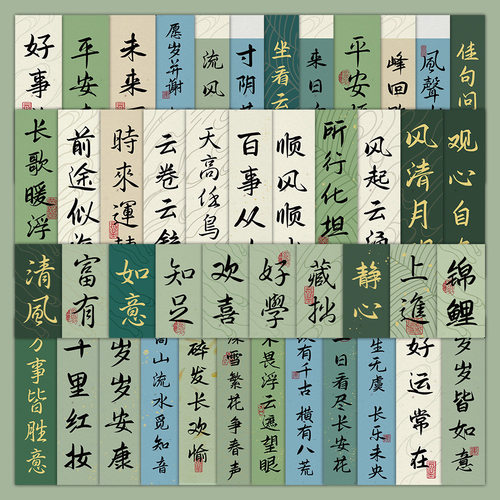 好事
平安
未来
愿岁并謝
流风
寸阴
坐看云
来日
平安
峰回
風聲
佳句问
长歌暖浮
前途似
時來運
云卷云
天高任鳥
百事从
顺风顺
所行化坦
风起云涌
风清月
观心自
清風
富有
如意
知足
欢喜
好學
藏拙
静心
上進
锦鲤
万事皆胜意
十里红妆
岁岁安康
高山流水觅知音
发长欢愉
雪繁花争春声
不畏浮云遮望眼
有千古 横有八荒
一日看尽长安花
生无虞 长乐未央
好运常在
岁岁皆如意